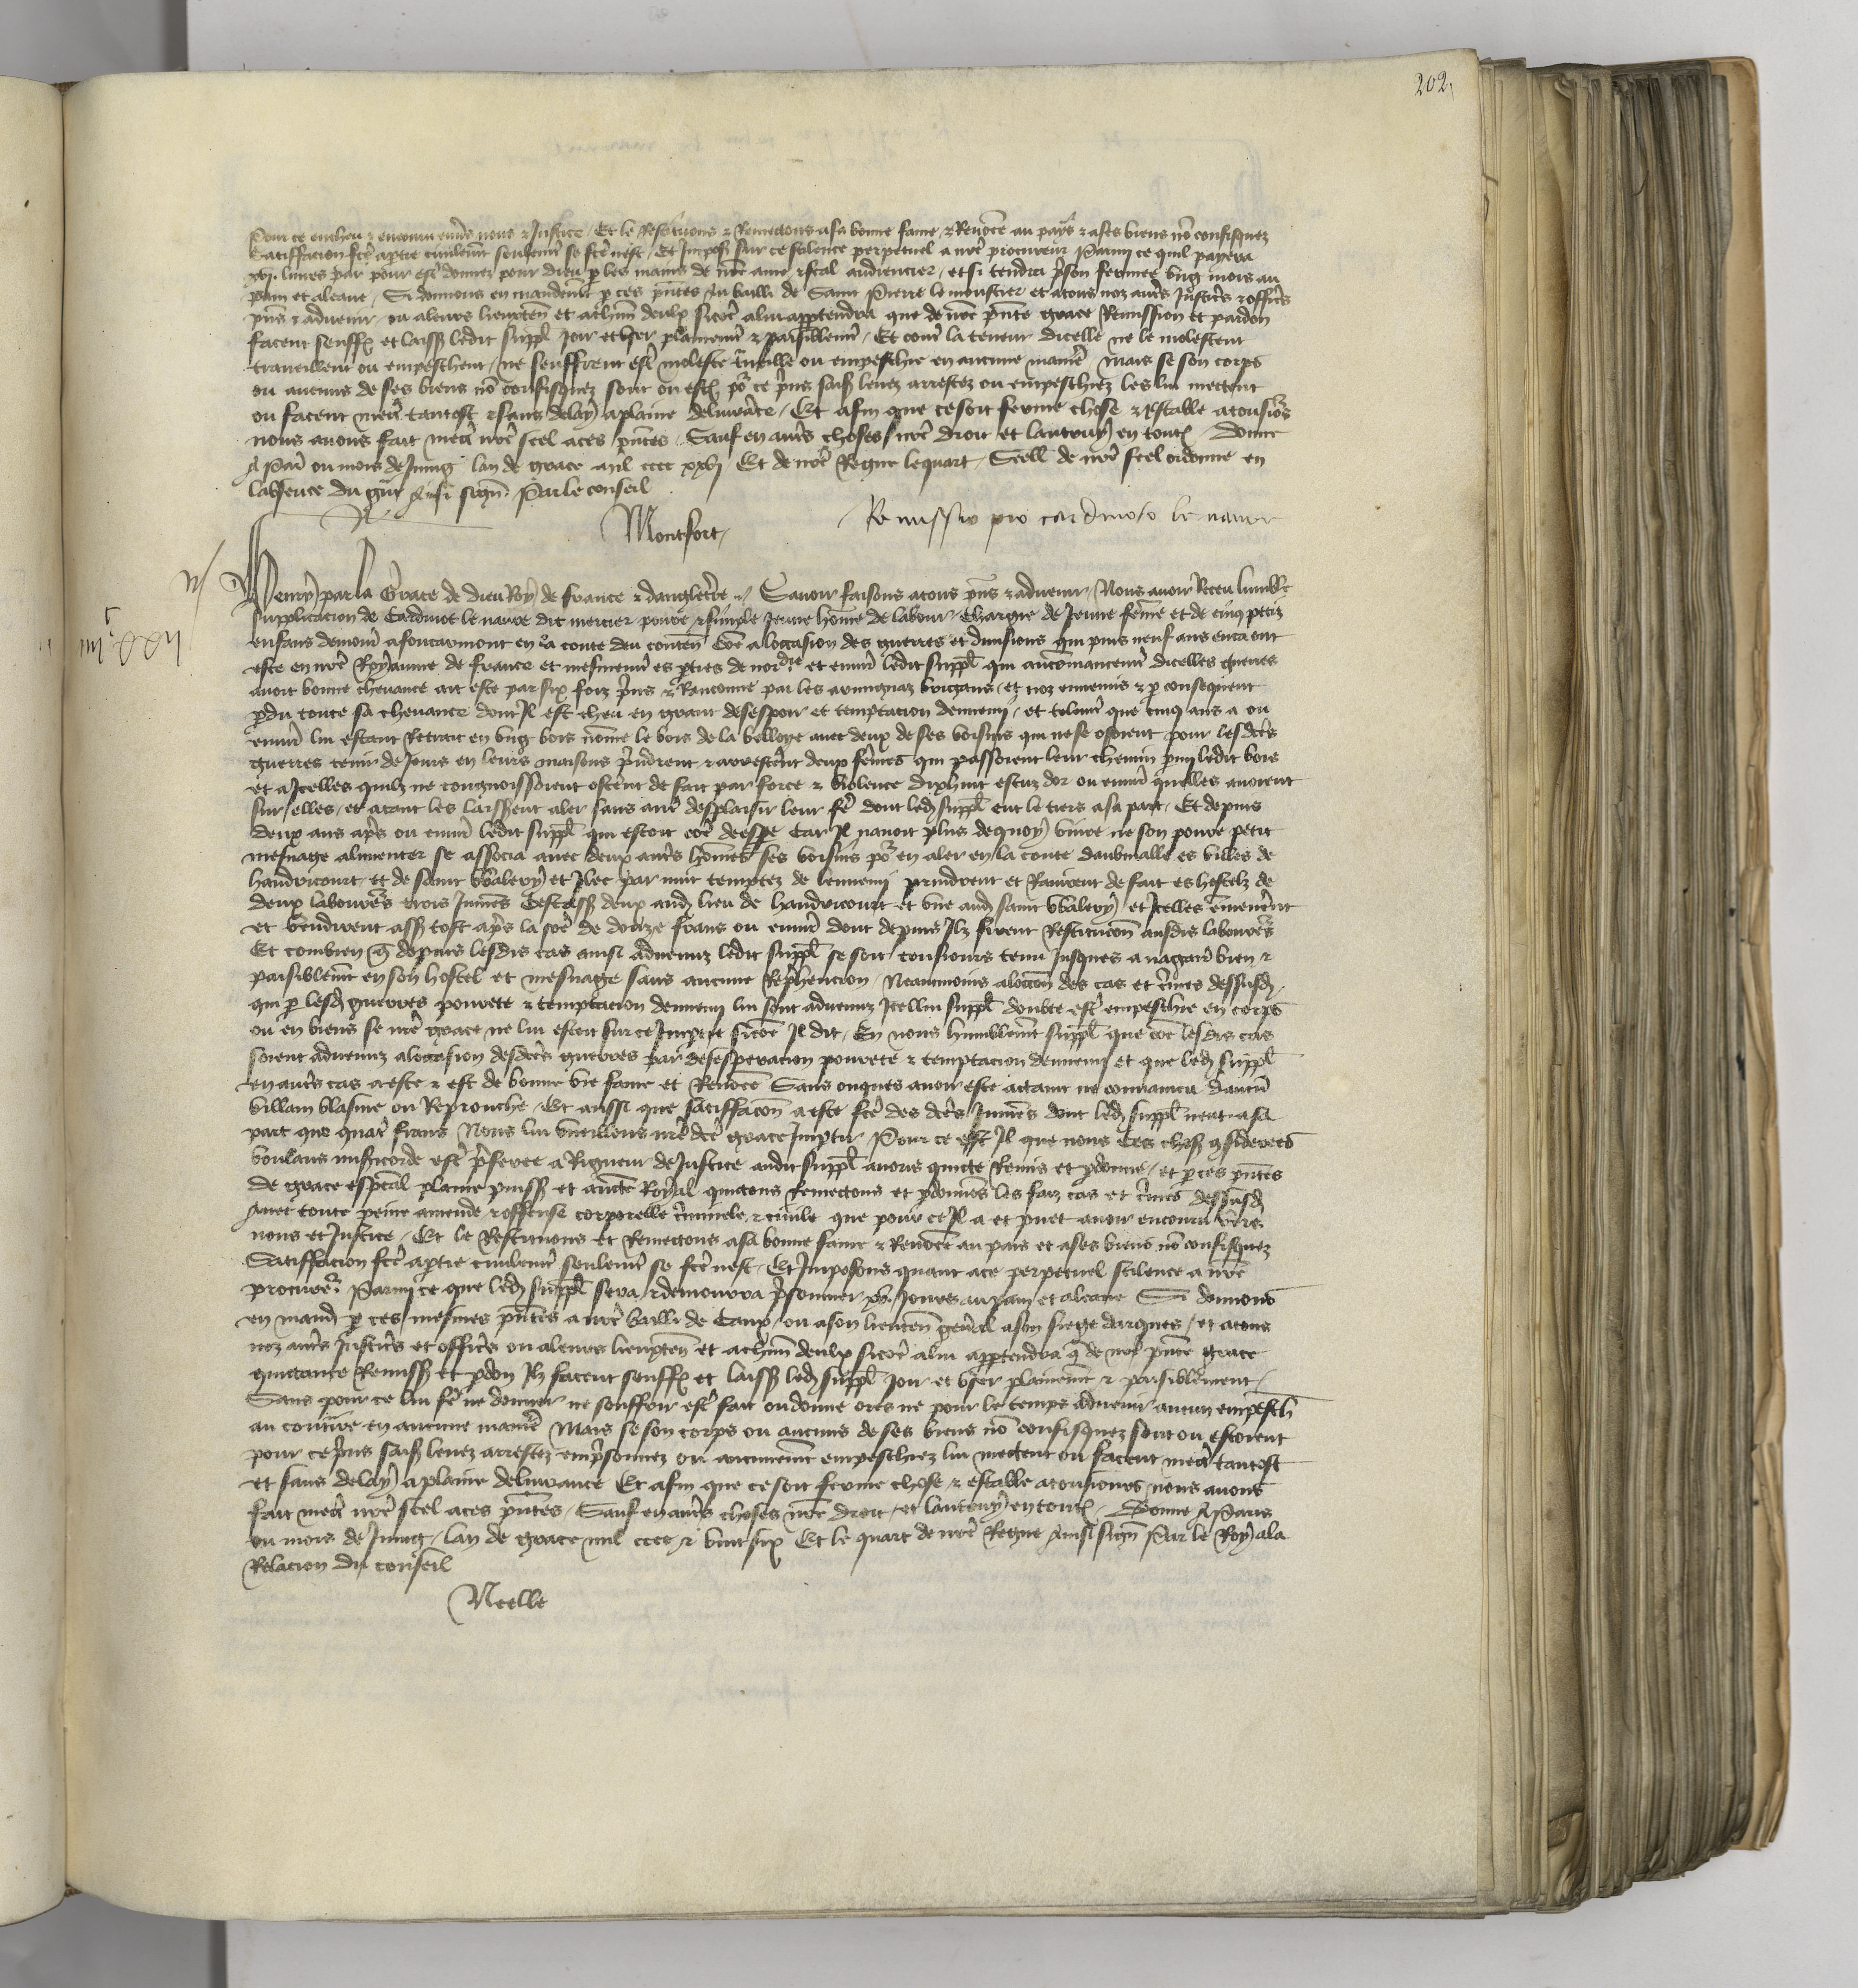 202.
Pour ce encheu et encouru envers nous et Justice / Et le Restituons et Remectons a sa bonne fame et Renomee au pays et a ses biens nõ confisquez
Satisfacion fcẽ a ptie civilemt seulemt se fcẽ nest / Et Impos̃ sur ce silence perpetuel a nrẽ procureur Parmi ce quil payera
xvj. livres par pour estre donnez pour dieu p les mains de nrẽ ame et feal audiencier / et si tendra prison fermee ung mois au
pain et a leaue / Si donnons en mandemt p ces pñtes Au bailli de Saint Pierre le moustier et a tous noz autrẽs Justicẽs et officẽs
pñs et advenir ou a leurs lieuxten̄ et a chũn deulx sicom̃e a lui appartendra que de nrẽ pñte grace Remission et pardon
facent seuffr̃ et laiss̃ ledit suppl̃ Joir et user plainemt et paisiblemt / Et contre la teneur dicelle ne le molestent
travaillent ou empeschent / ne seuffrent estrẽ moleste traveille ou empeschie en aucune manierẽ Mais se son corps
ou aucuns de ses biens nõ confisquez sont ou est̃ pour ce prins saisiz levez arrestez ou empeschiez les lui mectent
ou facent mectrẽ tantost et sans delay a plaine delivrãce / Et afin que ce soit ferme chose et estable a tousiours
nous avons fait mectrẽ nrẽ scel a ces pñtes Sauf en autrẽs choses nrẽ droit et lautruy en tout̃ Donne
A Paris ou mois de Juing lan de grace mil cccc xxvj Et de nrẽ Regne le quart / Seellẽ de nrẽ scel ordonne en
labsence du grãt Ainsi signẽ. Par le conseil
Montfort
Remissio pro cardinoto le navre
Henry par la Grace de dieu Roy de france et dangleterre Savoir faisons a tous pñs et advenir / Nous avoir Receu lumblẽ
supplicacion de Cardinot le navre dit mercier povre et simple Jeune hom̃e de labour / Chargie de Jeune fem̃e et de cinq petiz
enfans demourant a foucarmont en la conte deu contenãt com̃e a loccasion des guerres et divisions qui puis neuf ans encea ont
este en nrẽ Royaume de france et mesmemt es pties de normdie et environ ledit suppl̃ qui au com̃encemt dicelles guerres
avoit bonne chevance ait este par six foiz prins et Ranconne par les armignaz brigans / et noz ennemis et p consequent
pdu toute sa chevance dont Il est cheu en grant desespoir et temptacion dennemi / et telemt que cinq ans a ou
environ lui estant Retrait en ung bois nom̃e le bois de la belloye avec deux de ses voisins qui ne se osoient pour lesdcẽs
guerres tenir de Jours en leurs maisons prindrent et arresterẽt deux fem̃es qui passoient leur chemin parmy ledit bois
et a Icelles quilz ne congnoissoient osterẽt de fait par force et violence dixhuit escuz dor ou environ quelles avoient
sur elles / et atant les laisserent aler sans autrẽ desplaisir leur fẽ dont led̃ suppl̃ eut le tiers a sa part / Et depuis
deux ans aprẽs ou environ ledit suppl̃ qui estoit com̃e desespere car Il navoit plus dequoy vivre ne son povre petit
mesnage alimenter se associa avec deux autrẽs hom̃es ses voisins pour en aler en la conte daubmalle es villes de
haudricourt / et de saint valery et Ilec par nuit temptez de lennemi prindrent et Ravirent de fait es hostelz de
deux laboureurs trois Jumens Cestass̃ deux aud̃ lieu de haudricourt et une aud̃ saint valery et Icelles em̃enerẽt
et vendirent ass̃ tost aprẽs la som̃e de douze frans ou environ dont depuis Ilz firent Restitucion ausdis laboureurs
Et combien q̃ depuis lesdis cas ainsi advenuz ledit suppl̃ se soit tousiours tenu Jusques a nagaires bien et
paisiblemt en son hostel et mesnage sans aucune Reprehencion / Neantmoins a loccãon des cas et crimes dessusd̃
qui p lesd̃ guerres povrete et temptacion dennemi lui sont advenuz Icellui suppl̃ doubte estrẽ empeschie en corps
ou en biens se nrẽ grace ne lui estoit sur ce Impartie sicom̃e Il dit / En nous humblemt suppl̃ que com̃e lesdis cas
soient advenuz a loccasion desdcẽs guerres par desesperacion povrete et temptacion dennemi et que led̃ suppl̃
en autrẽs cas a este et est de bonne vie fame et Renom̃ee Sans onques avoir este attaint ne convaincu daucũ
villain blasme ou Reprouche / Et aussi que satisfacion a este fcẽ des dcẽs Jumens dont led̃ suppl̃ neut a sa
part que quatrẽ frans Nous lui vueillons nrẽ dcẽ grace Impartir Pour ce est Il que nous Ces chos̃ considerees
voulans misericorde estrẽ preferee a Rigueur de Justice audit suppl̃ avons quicte Remis et pdonne / et p ces pñtes
de grace especial plaine puiss̃ et autcẽ Royal quictons Remectons et pdonnons les faiz cas et crimes dessusd̃
Avec toute peine amende et offense corporelle criminele et civile que pour ce Il a et puet avoir encouru envers
nous et Justice / Et le Restituons et Remectons a sa bonne fame et Renom̃ee au pais et a ses biens nõ confisquez
Satisfacion fcẽ a ptie civilemt seulemt se fcẽ nest / Et Imposons quant a ce perpetuel silence a nrẽ
procureur Parmi ce que led̃ suppl̃ sera et demourra prisonnier xv. Jours au pain et a leaue Si donnons
en mand̃ p ces mesmes pñtes a nrẽ bailli de Caux / ou a son lieuten̄ general a son siege darques / et a tous
noz autrẽs Justicẽs et officẽs ou a leurs lieuxten̄ et a chũn deulx sicom̃e a lui appartendra q̃ de nrẽ pñte grace
quictance Remiss̃ et pdon Ilz facent seuffr̃ et laiss̃ led̃ suppl̃ Joir et user plainemt et paisiblement
Sans pour ce lui fẽ ne donner ne souffrir estrẽ fait ou donne ores ne pour le temps advenir aucun empesch̃
au contraire en aucune manierẽ Mais se son corps ou aucuns de ses biens nõ confisquez sont ou estoient
pour ce prins saisiz levez arrestez emprisonnez ou autrement empeschiez lui mectent ou facent mectrẽ tantost
et sans delay a plaine delivrance Et afin que ce soit ferme chose et estable a tousiours nous avons
fait mectrẽ nrẽ scel a ces pñtes / Sauf en autrẽs choses nrẽ droit / et lautruy en tout̃ Donne A Paris
ou mois de Juing / lan de grace mil cccc et vint six Et le quart de nrẽ Regne Ainsi signẽ Par le Roy a la
Relacion du conseil
Neelle